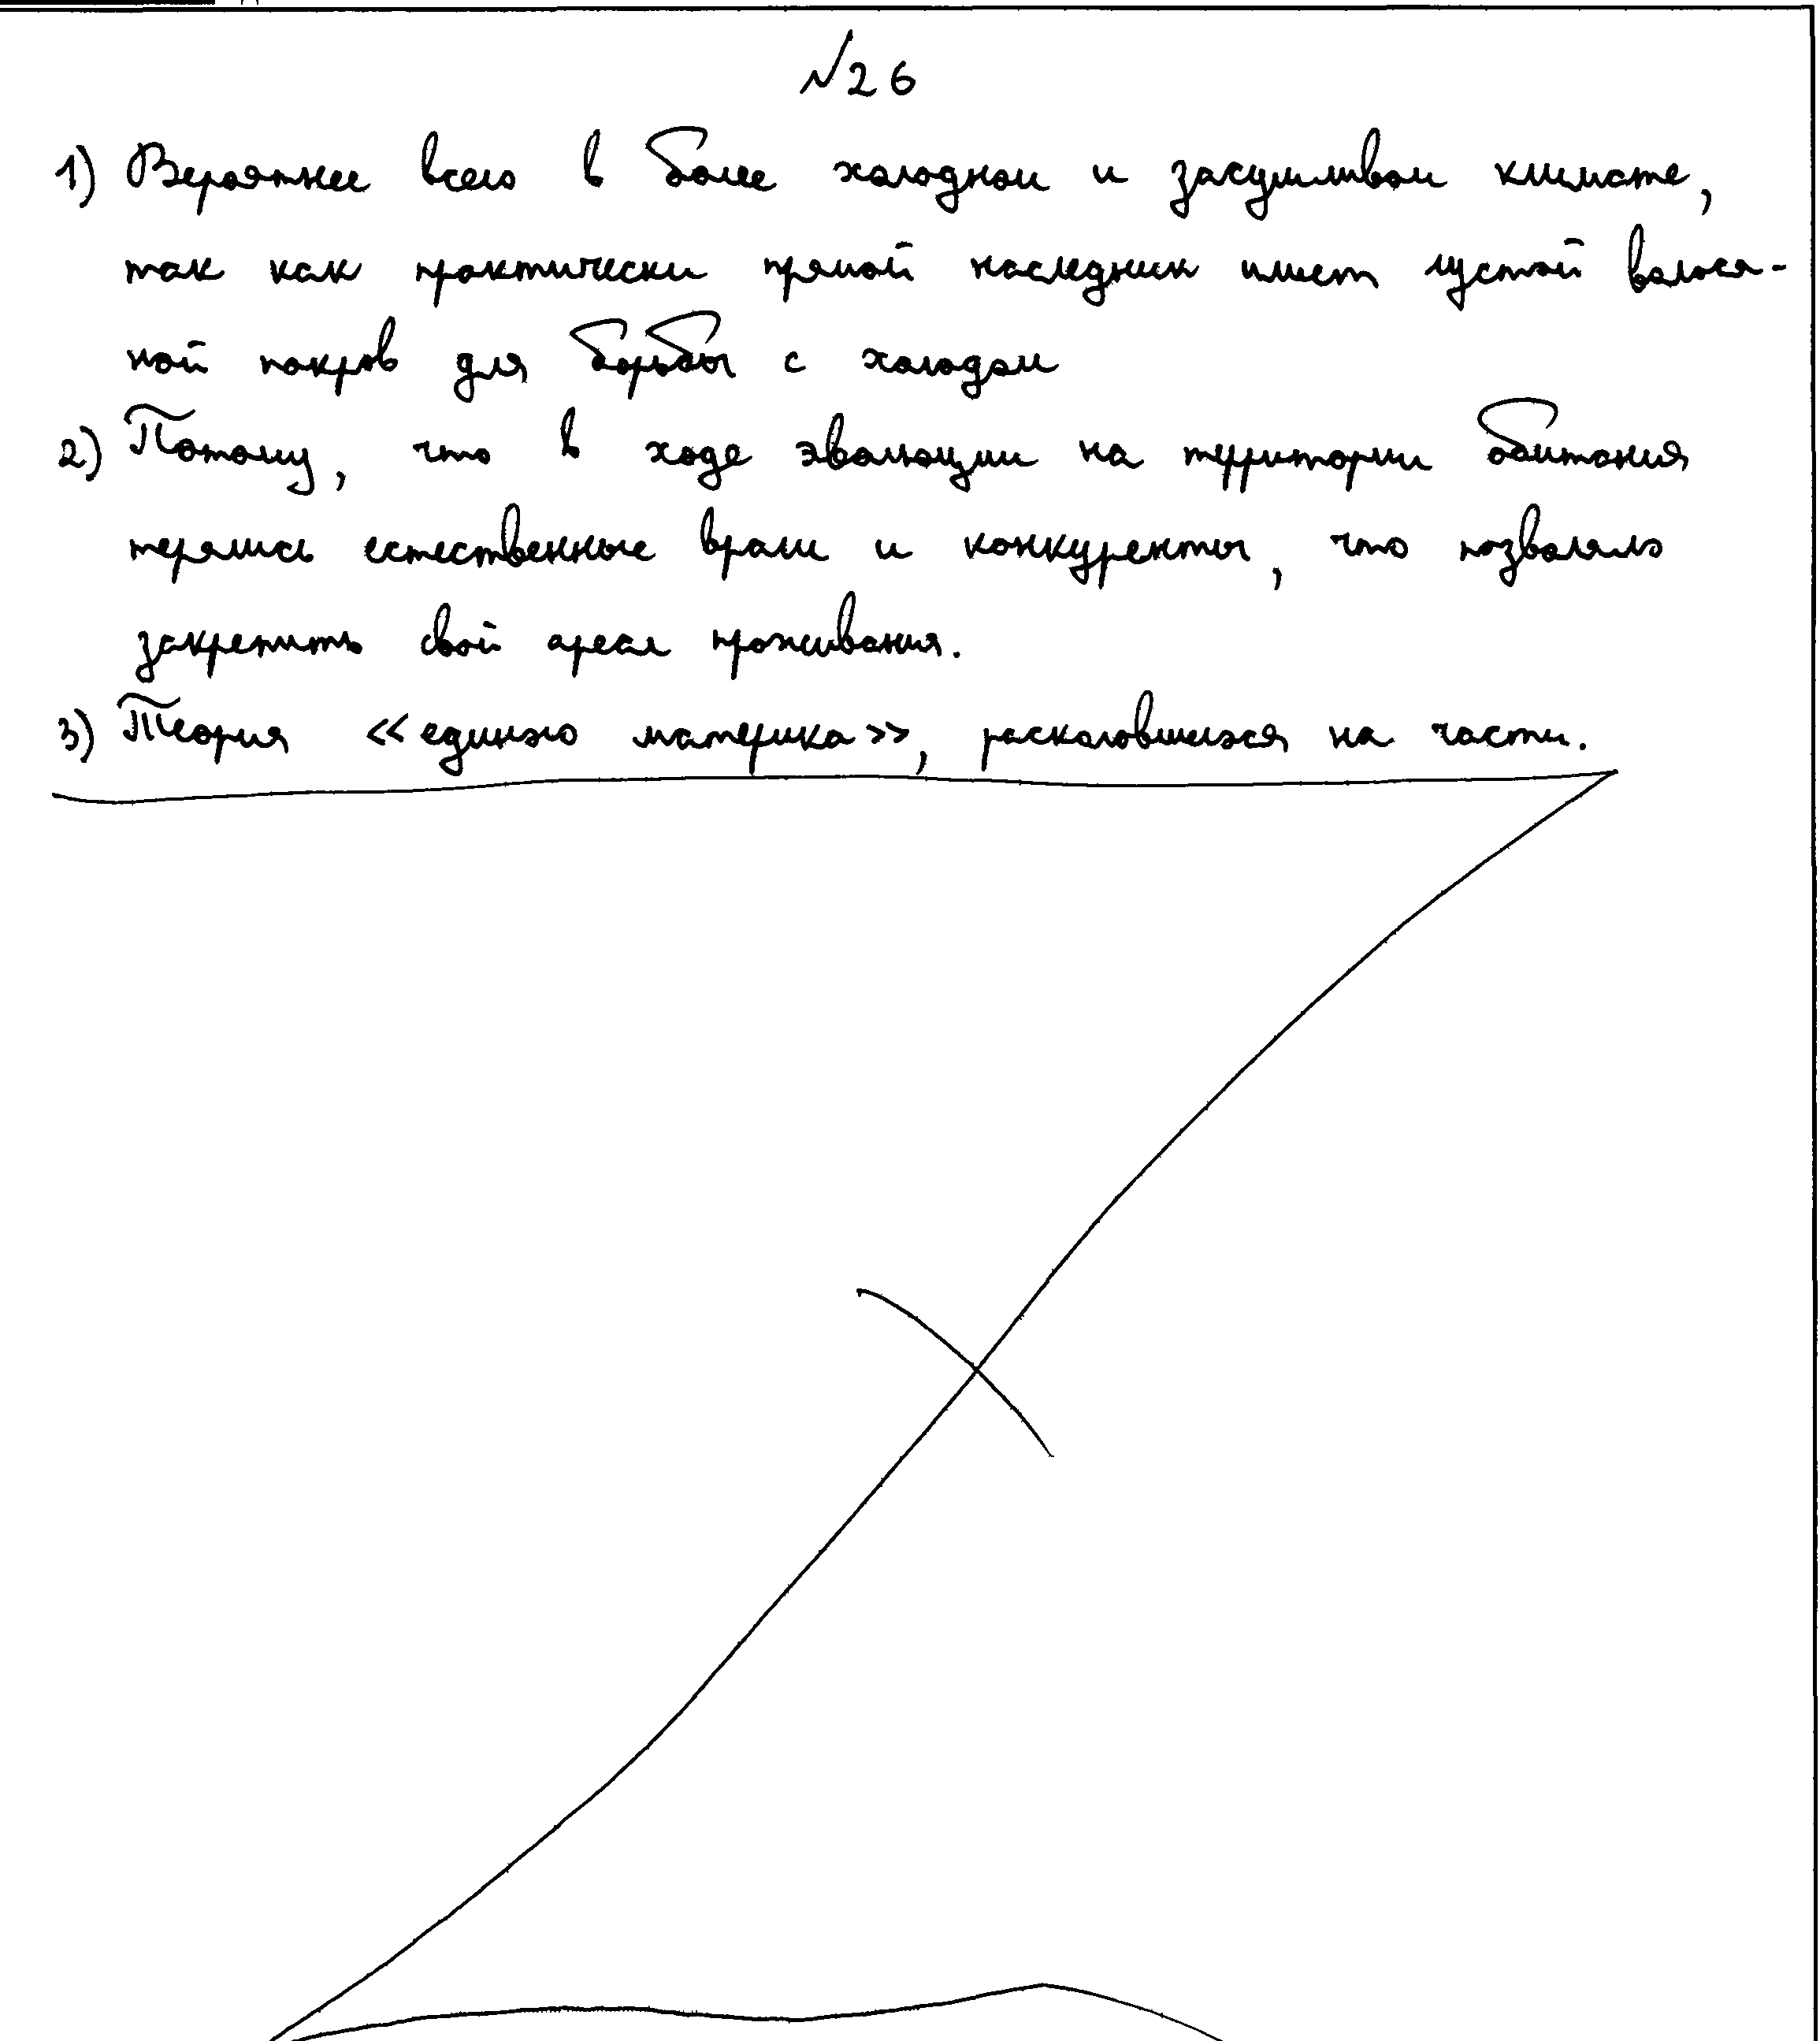 №26
1) Вероятнее всего в более холодном и засушливом климате,
так как практически прямой наследник имеет густой волося-
ной покров для борьбы с холодом
2) Потому, что в ходе эволюции на территории обитания
терялись естественные враги и конкуренты, что позволяло
закрепить свой ареал проживания.
3) Теория «единого материка», расколовшегося на части.